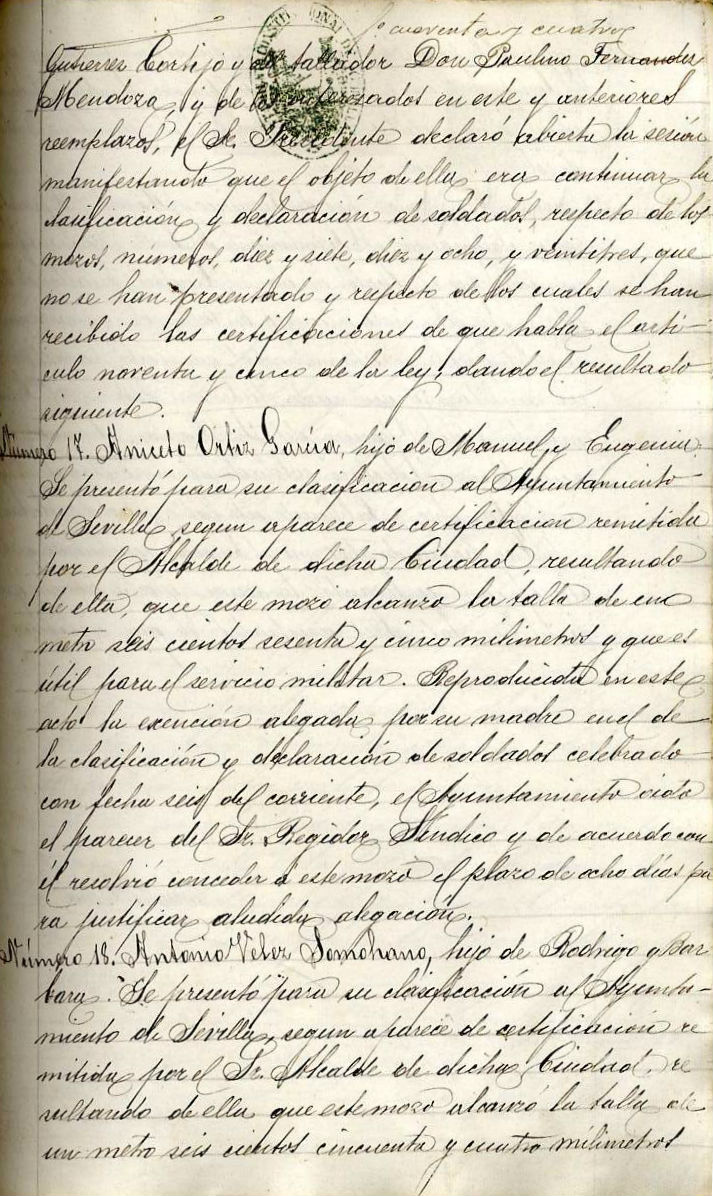 cuarenta y cuatro
Gutierrez Cortijo y el tallador Don Paulino Fernandez
Mendoza, y de los interezados en este y anteriores
reemplazos, el Sr. Presidente declaró abierta la sesión
manifestando que el objeto de ella, era continuar la
clasificación y declaración de soldados, respecto de los
mozos, números, diez y siete, diez y ocho, y veintitres, que
no se han presentado y respecto de los cuales se han
recibido las certificaciones de que habla el artí-
culo noventa y cinco de la ley, dando el resultado
siguiente.
Número 17. Aniceto Ortiz García, hijo de Manuel y Eugenia.
Se presentó para su clasificacion al Ayuntamiento
de Sevilla, segun aparece de certificacion remitida
por el Alcalde de dicha Ciudad, resultando
de ella, que este mozo alcanzó la talla de un
metro seis cientos sesenta y cinco milimetros y que es
útil para el servicio militar. Reproducida en este
acto la exención alegada, por su madre en el de
la clasificación y declaración de soldados celebrado
con fecha seis del corriente, el Ayuntamiento oido
el parecer del Sr. Regidor Síndico y de acuerdo con
él resolvió conceder a este mozo el plazo de ocho días pa
ra justificar aludida alegación.
Número 18. Antonio Velez Somohano, hijo de Rodrigo y Bar
bara. Se presentó para su clasificación al Ayunta-
miento de Sevilla, segun aparece de certificación re
mitida por el Sr. Alcalde de dicha Ciudad, re
sultando de ella que este mozo alcanzó la talla de
un metro seis cientos cincuenta y cuatro milímetros